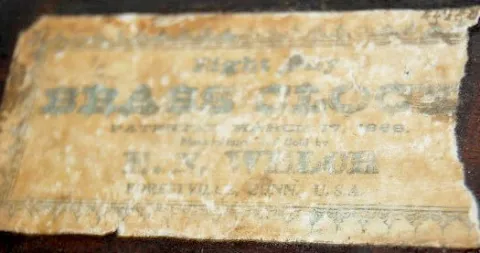 Eight Day
BRASS CLOCK
PATENTED MARCH 17, 1868.
Manufactured & Sold by
E. N. WELCH
FORESTVILLE, CONN. U.S.A.